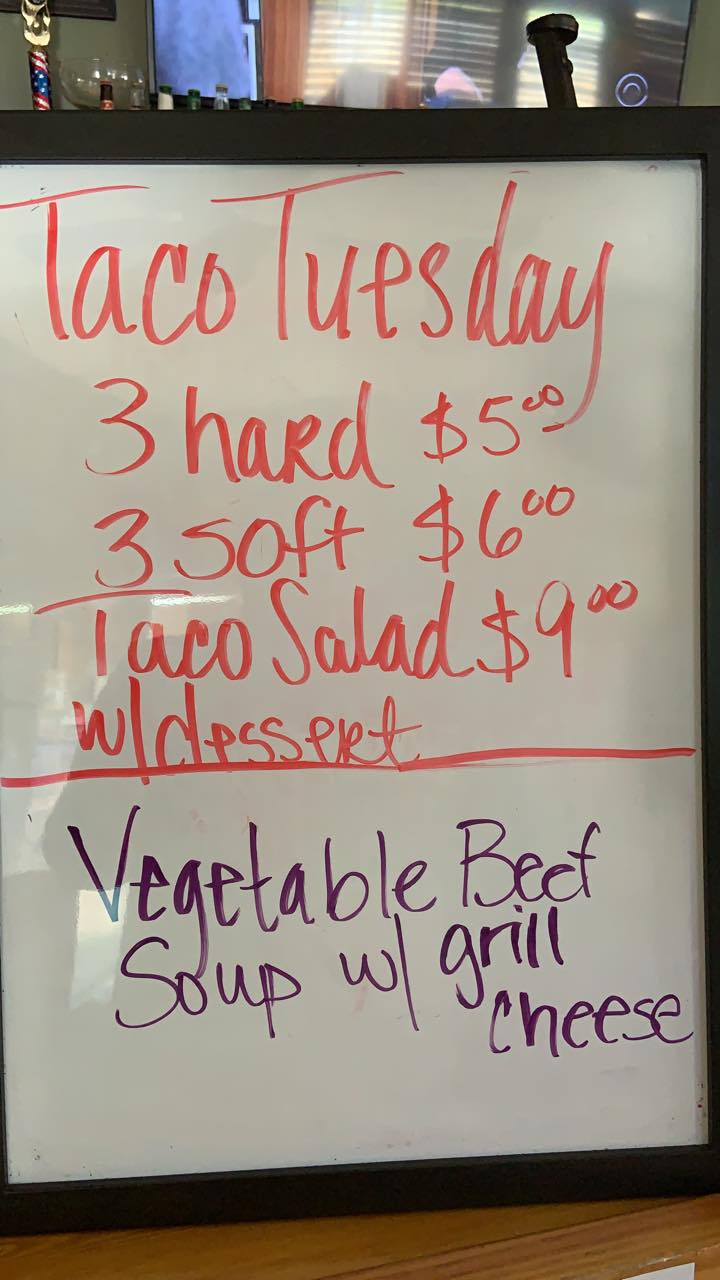 Taco Tuesday
3 hard $5.00
3 soft $6.00
Taco Salad $9.00
w/dessert
Vegetable Beef
Soup w/ grill
cheese